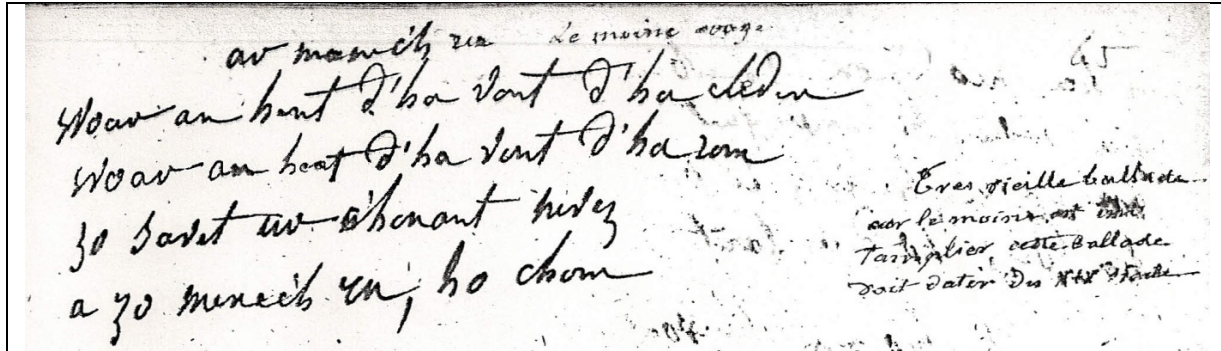 ar manech ru Le moine rouge 45
Woar an hent d'ha vont d'ha cleden
Woar an hent d'ha vont d'ha rom
zo savet ur c'honant nevez
a zo menech ru, ho chom
Tres vieille ballade
car le moine est un
Tamplier, cette ballade
doit dater du siecle